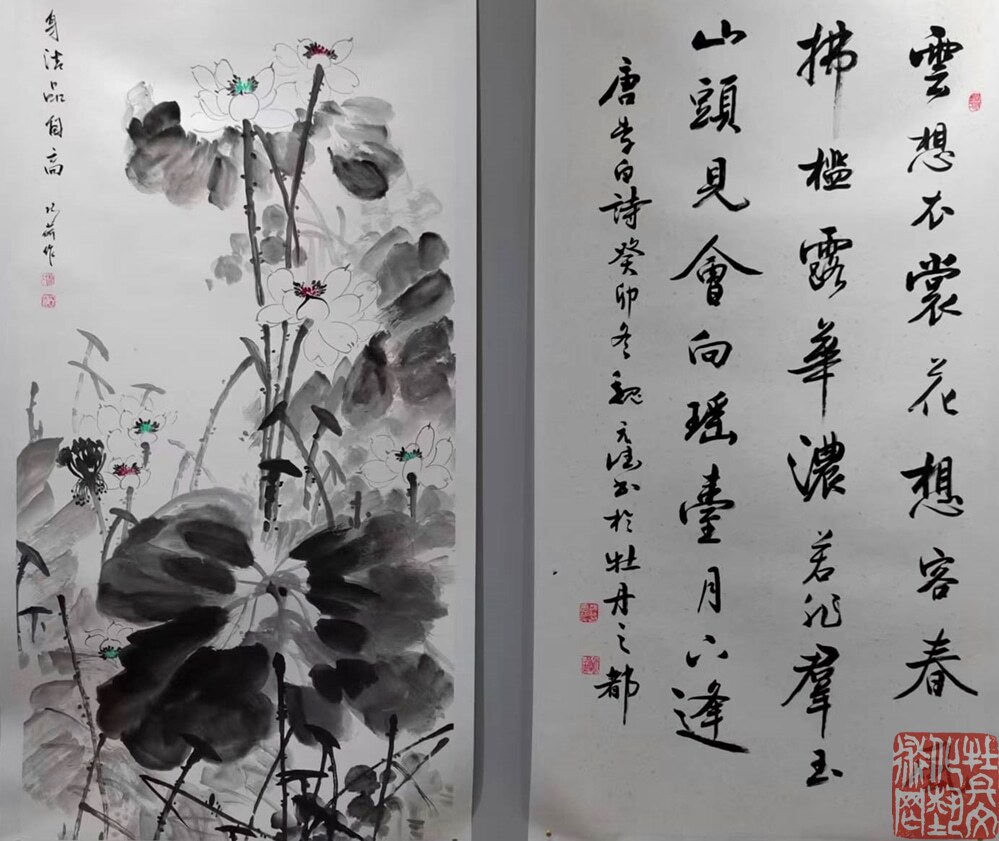 雲想衣裳花想容春
拂檻露華濃若非羣玉
山頭見會向瑶臺月下逢
唐李白詩癸卯冬魏元书於牡丹之都
身洁品自高
荷作